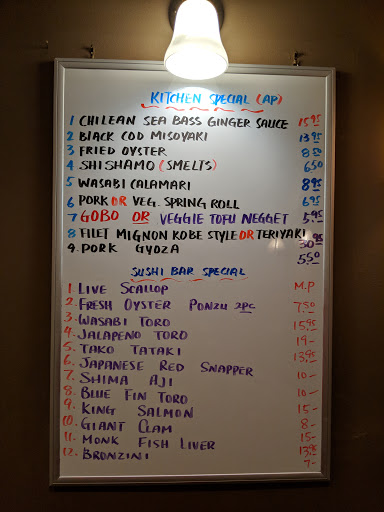 KITCHEN SPECIAL (AP)
1 CHILEAN SEA BASS GINGER SAUCE 15.95
2 BLACK COD MISOYAKI 13.95
3 FRIED OYSTER 8.50
4 SHISHAMO (SMELTS) 6.50
5 WASABI CALAMARI 8.95
6 PORK OR VEG. SPRING ROLL 6.95
7 GOBO OR VEGGIE TOFU NEGGET 5.95
8 FILET MIGNON KOBE STYLE OR TERIYAKI 30.95
9. PORK GYOZA 5.50
SUSHI BAR SPECIAL
1 LIVE SCALLOP M.P
2. FRESH OYSTER PONZU 2PC 7.50
3. WASABI TORO 15.95
4. JALAPENO TORO 19-
5. TAKO TATAKI 13.95
6. JAPANESE RED SNAPPER 10-
7. SHIMA AJI 10-
8. BLUE FIN TORO 15-
9. KING SALMON 8-
10. GIANT CLAM 15-
11. MONK FISH LIVER 13.95
12. BRONZINI 7-